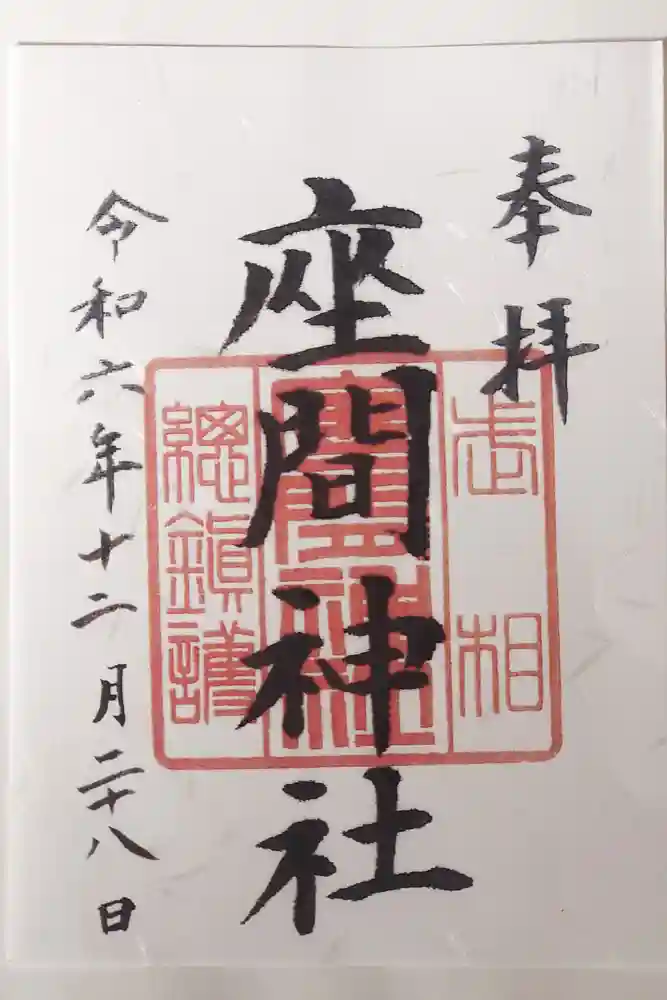 奉拝
武相
座間神社
總鎮護
令和六年十二月二十八日